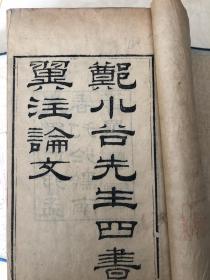 鄭小谷先生四書
翼注論文